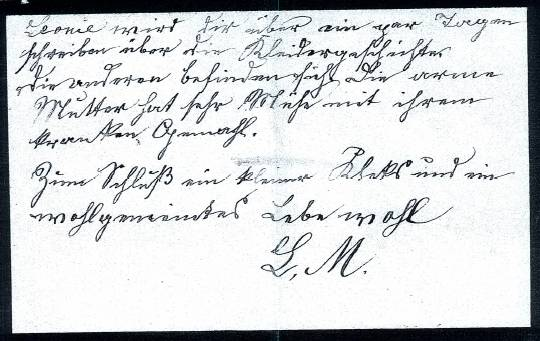 Leonie wird dir über ein par Tagen
schreiben über die Kleidergeschichte
die anderen befinden sich Die arme
Mutter hat sehr Mühe mit ihrem
kranken Gemahl.
Zum Schluß ein kleiner Kleks und ein
wohlgemeintes Lebe wohl
L. M.